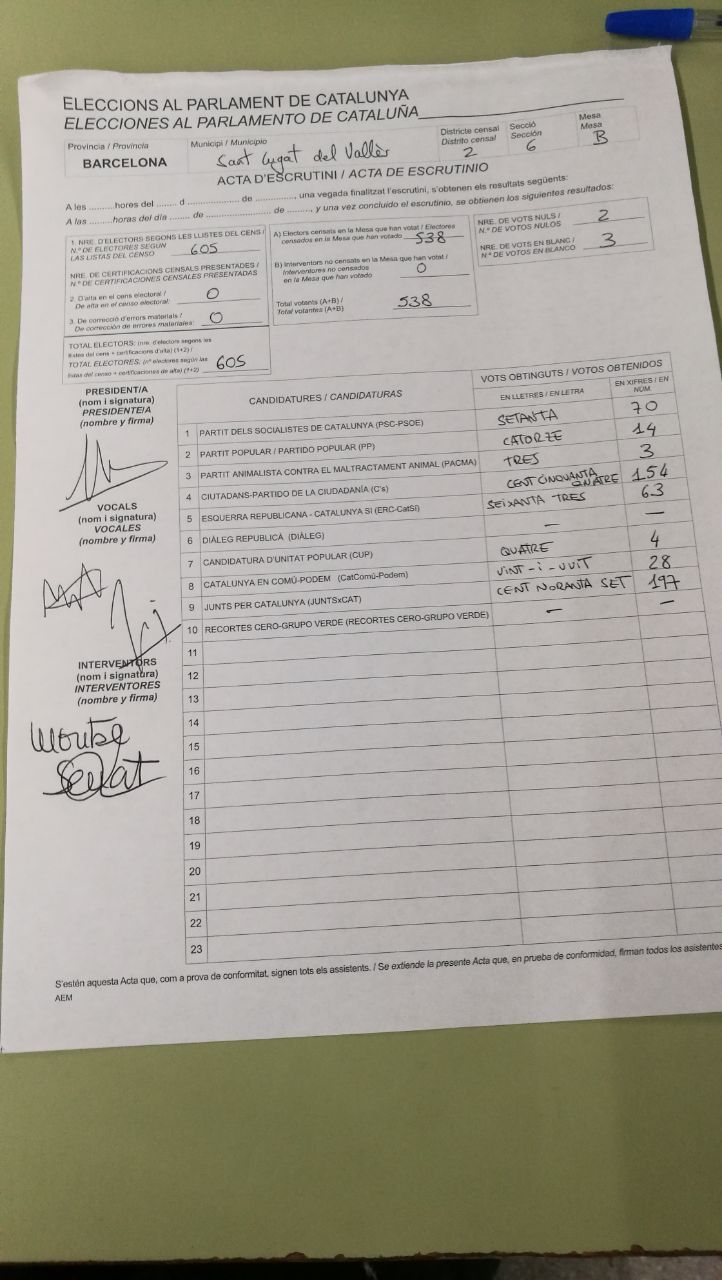 ELECCIONS AL PARLAMENT DE CATALUNYA
ELECCIONES AL PARLAMENTO DE CATALUÑA
Província / Provincia
BARCELONA
Municipi / Municipio
Sant Cugat del Vallès
Districte censal
Distrito censal
2
Secció
Sección
6
Mesa
Mesa
B
ACTA D'ESCRUTINI / ACTA DE ESCRUTINIO
A les ......... hores del ........ d .................... de .............., una vegada finalitzat l'escrutini, s'obtenen els resultats següents:
A las ......... horas del día ........ de .................... de ........., y una vez concluido el escrutinio, se obtienen los siguientes resultados:
1. NRE. D'ELECTORS SEGONS LES LLISTES DEL CENS /
N.º DE ELECTORES SEGÚN
LAS LISTAS DEL CENSO 605
NRE. DE CERTIFICACIONS CENSALS PRESENTADES /
N.º DE CERTIFICACIONES CENSALES PRESENTADAS
2. D'alta en el cens electoral /
De alta en el censo electoral: 0
3. De correcció d'errors materials /
De corrección de errores materiales: 0
TOTAL ELECTORS: (nre. d'electors segons les
llistes del cens + certificacions d'alta) (1+2) /
TOTAL ELECTORES: (nº electores según las
listas del censo + certificaciones de alta) (1+2) 605
A) Electors censats en la Mesa que han votat / Electores
censados en la Mesa que han votado 538
B) Interventors no censats en la Mesa que han votat /
Interventores no censados
en la Mesa que han votado 0
Total votants (A+B) /
Total votantes (A+B) 538
NRE. DE VOTS NULS /
N.º DE VOTOS NULOS 2
NRE. DE VOTS EN BLANC /
N.º DE VOTOS EN BLANCO 3
PRESIDENT/A
(nom i signatura)
PRESIDENTE/A
(nombre y firma)
VOCALS
(nom i signatura)
VOCALES
(nombre y firma)
INTERVENTORS
(nom i signatura)
INTERVENTORES
(nombre y firma)
Montse
CANDIDATURES / CANDIDATURAS
VOTS OBTINGUTS / VOTOS OBTENIDOS
EN LLETRES / EN LETRA
EN XIFRES / EN NÚM.
1 PARTIT DELS SOCIALISTES DE CATALUNYA (PSC-PSOE) SETANTA 70
2 PARTIT POPULAR / PARTIDO POPULAR (PP) CATORZE 14
3 PARTIT ANIMALISTA CONTRA EL MALTRACTAMENT ANIMAL (PACMA) TRES 3
4 CIUTADANS-PARTIDO DE LA CIUDADANÍA (C's) CENT CINQUANTA QUATRE 154
5 ESQUERRA REPUBLICANA - CATALUNYA SÍ (ERC-CatSí) SEIXANTA TRES 63
6 DIÀLEG REPUBLICÀ (DIÀLEG) — —
7 CANDIDATURA D'UNITAT POPULAR (CUP) QUATRE 4
8 CATALUNYA EN COMÚ-PODEM (CatComú-Podem) VINT-I-VUIT 28
9 JUNTS PER CATALUNYA (JUNTSxCAT) CENT NORANTA SET 197
10 RECORTES CERO-GRUPO VERDE (RECORTES CERO-GRUPO VERDE) — —
11
12
13
14
15
16
17
18
19
20
21
22
23
S'estén aquesta Acta que, com a prova de conformitat, signen tots els assistents. / Se extiende la presente Acta que, en prueba de conformidad, firman todos los asistentes
AEM